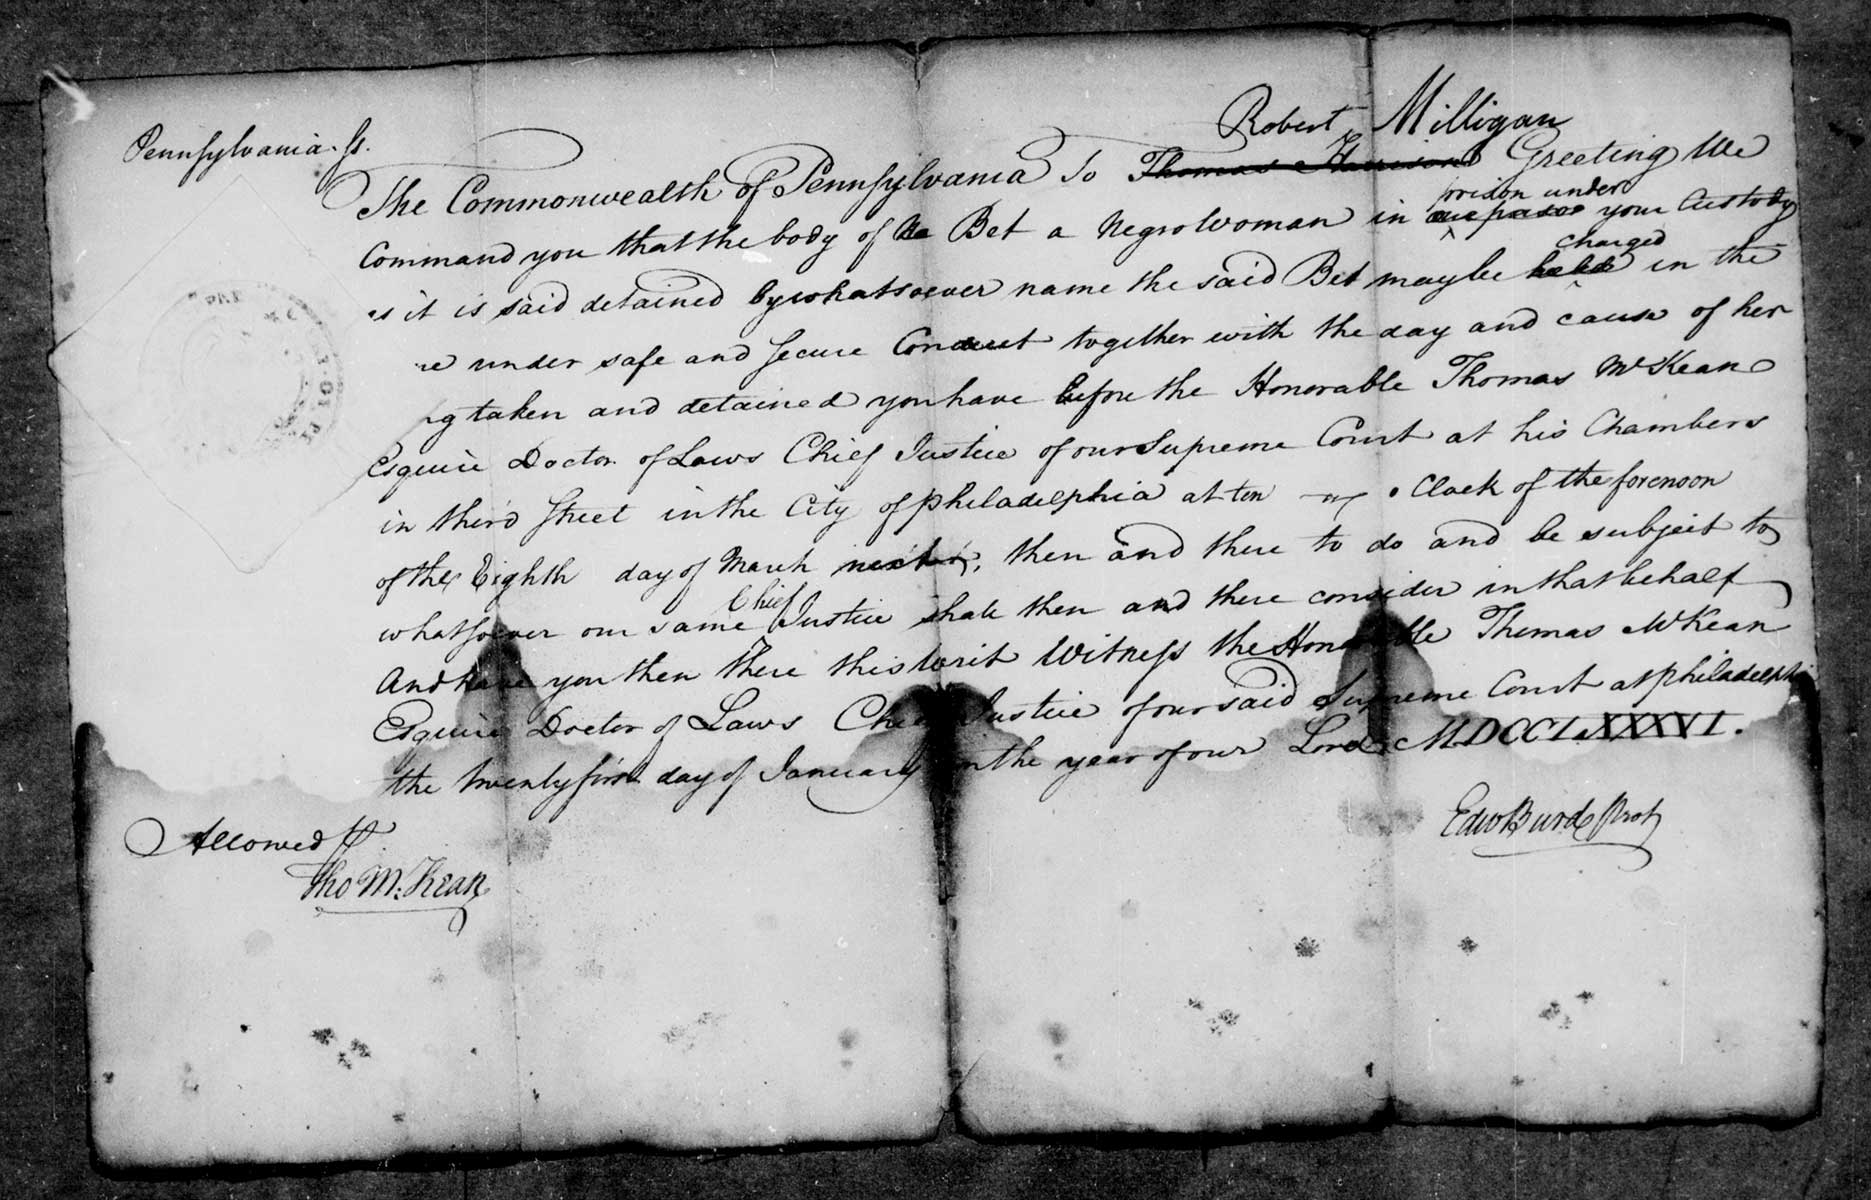 Pennsylvania. ss.
Robert Milligan
The Commonwealth of Pennsylvania To Thomas Harrison Greeting We
prison under
Command you that the body of Ne Bet a Negro Woman in your Custody
charged
as it is said detained by whatsoever name the said Bet may be in the
re under safe and secure Conduct together with the day and cause of her
g taken and detained you have before the Honorable Thomas McKean
Esquire Doctor of Laws Chief Justice of our Supreme Court at his Chambers
in third Street in the City of Philadelphia at ten o Clock of the forenoon
of the Eighth day of March next, then and there to do and be subject to
Chief
whatsoever our same Justice shall then and there consider in that behalf
And have you then there this writ Witness the Honorable Thomas McKean
Esquire Doctor of Laws Chief Justice of our said Supreme Court at Philadelphia
the twenty first day of January in the year of our Lord MDCCLXXXVI.
Edw Burd Prot
Allowed
Tho M:Kean